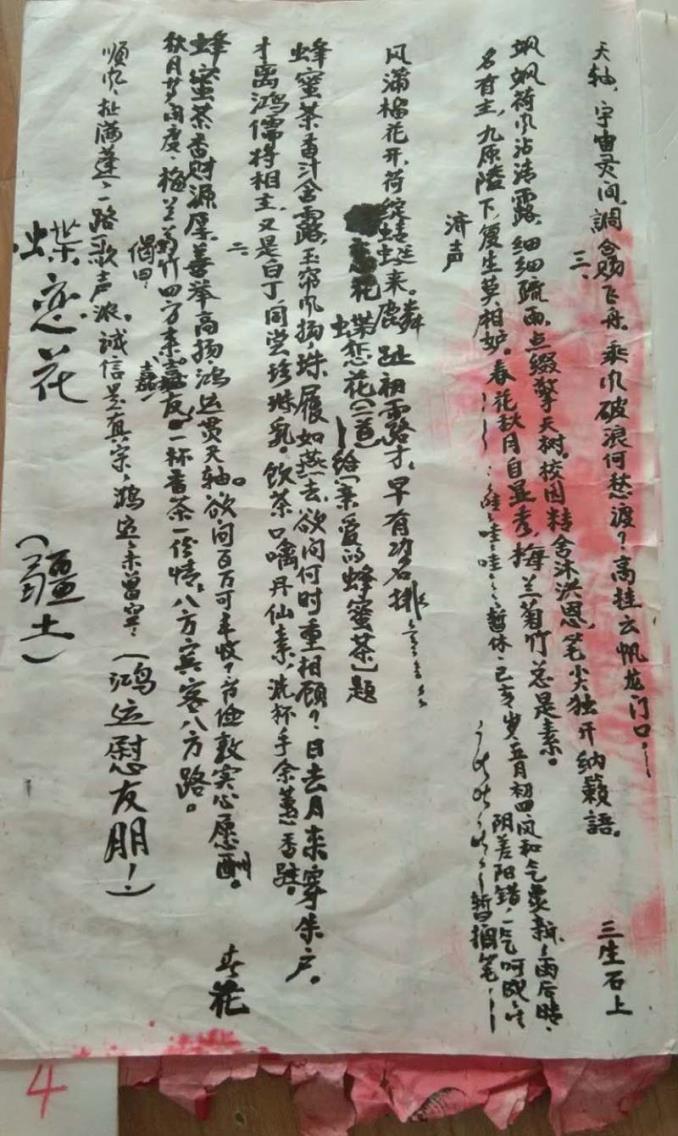 天轴、宇宙灵间調禽赐飞舟。乘风破浪何愁渡？高挂云帆龙门口
三生石上
三、
飒飒荷风沾清露，细细疏雨点缀擎天树。校园精舍沐洪恩，笔尖独开纳籁語。
名有主，九原陵下复生莫相妒。春花秋月自显秀，梅兰菊竹总是素。
哇哇暂休己亥岁五月初四风和气爽新雨后晴
济声
阴差阳错一气呵成
暂搁笔
风满榴花开，荷绽蜻蜓来。麟趾初露才，早有功名排
蝶恋花(二首)给《亲爱的蜂蜜茶》题
蜂蜜茶香汁含露，玉帘风扬珠履如燕去。欲问何时重相顾？日去月来穿朱户。
才离鸿儒将相主，又是白丁同尝珍琳乳。饮茶口噙丹仙素，洗杯手余蕙香驻。
二
蜂蜜茶香财源厚，善举高扬鸿运贯天轴。欲问百万可丰收？首俭敦实心愿酬。
秋月梦闲度，梅兰菊竹四方来嘉友。一杯香茶一份情，八方宾客八方路。
春花
偈曰
顺风扯满蓬，一路歌声浓。诚信是真宗，鸿运未曾空。(鸿运慰友朋！)
蝶恋花
(疆土)
4